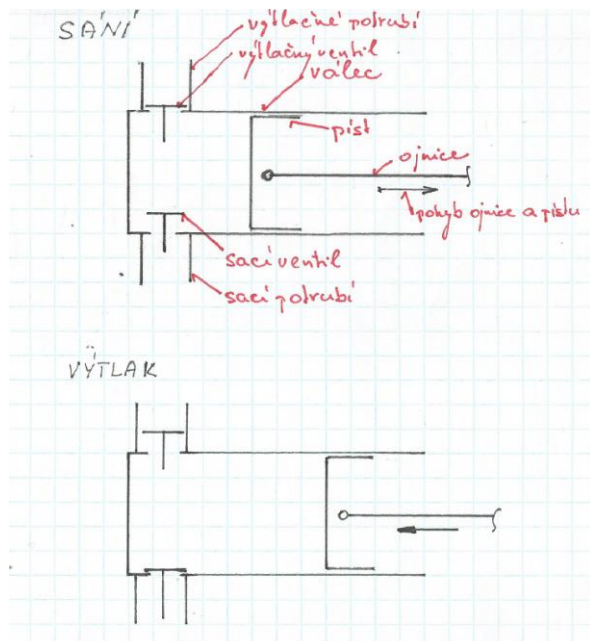 SÁNÍ
výtlačné potrubí
výtlačný ventil
válec
píst
ojnice
pohyb ojnice a pístu
sací ventil
sací potrubí
VÝTLAK